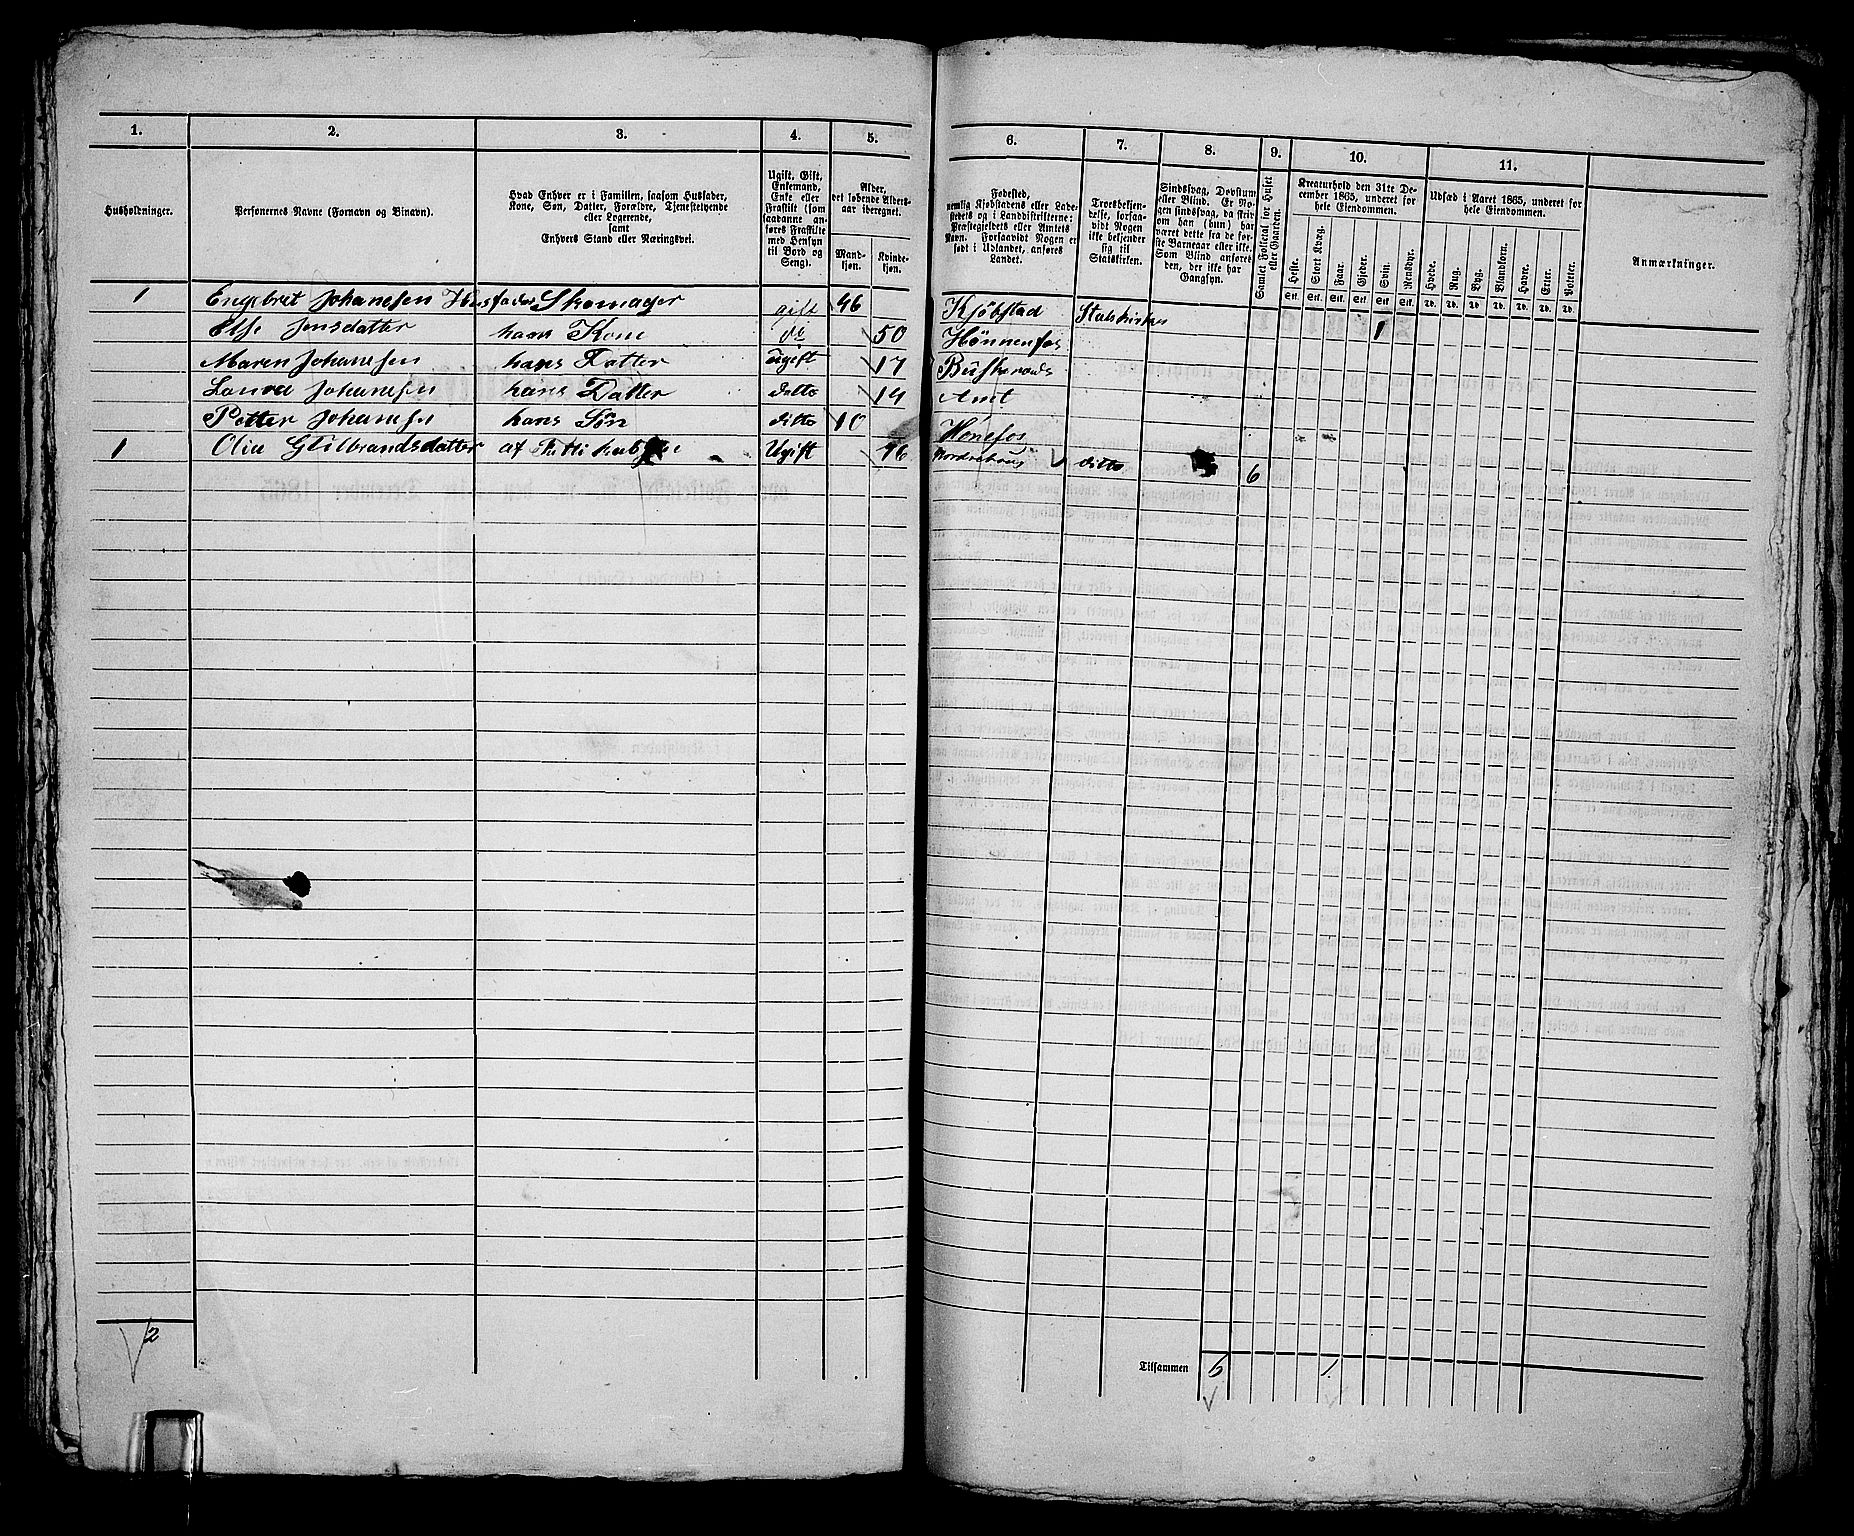 1. 2. 3. 4. 5. 6. 7. 8. 9. 10. 11.
Husholdninger.
Personernes Navne (Fornavn og Binavn).
Hvad Enhver er i Familien, saasom Husfader,
Kone, Søn, Datter, Forældre, Tjenestetyende
eller Logerende,
samt
Enhvers Stand eller Næringsvei.
Ugift, Gift,
Enkemand,
Enke eller
Fraskilt (som
saadanne an-
føres Fraskilte
med Hensyn
til Bord og
Seng).
Alder,
det løbende Alders-
aar iberegnet.
Mand-
kjøn.
Kvinde-
kjøn.
Fødested,
nemlig Kjøbstadens eller Lade-
stedets og i Landdistrikterne:
Præstegjeldets eller Amtets
Navn. Forsaavidt Nogen er
født i Udlandet, anføres
Landet.
Troesbekjen-
delse, forsaa-
vidt Nogen
ikke bekjender
sig til
Statskirken.
Sindssvag, Døvstum
eller Blind. Er No-
gen sindssvag, da skriv
om han (hun) har
været dette fra de før-
ste Barneaar eller ikke.
Som Blind anføres
den, der ikke har
Gangsyn.
Samlet Folketal for Huset
eller Gaarden.
Kreaturhold den 31te De-
cember 1865, underet for
hele Eiendommen.
Heste. Stort Kvæg. Faar. Gjeder. Svin. Rensdyr.
Stk. Stk. Stk. Stk. Stk. Stk.
Udsæd i Aaret 1865, underet for
hele Eiendommen.
Hvede. Rug. Byg. Blandkorn. Havre. Erter. Poteter.
Td. Td. Td. Td. Td. Td. Td.
Anmærkninger.
1 Engebret Johanesen Husfader Skomager gift 46 Kjöbstad Statskirken
Else Jensdatter hans Kone do 50 Hönnenfos 1
Maren Johanesen hans Datter Ugift 17 Buskeruds
Laura Johanesen hans Datter ditto 14 Amt
Petter Johanesen hans Sön ditto 10 Hönefos
1 Olia Gulbrandsdatter af Ugift 76 Norderhous ditto 6
2
Tilsammen 6 1